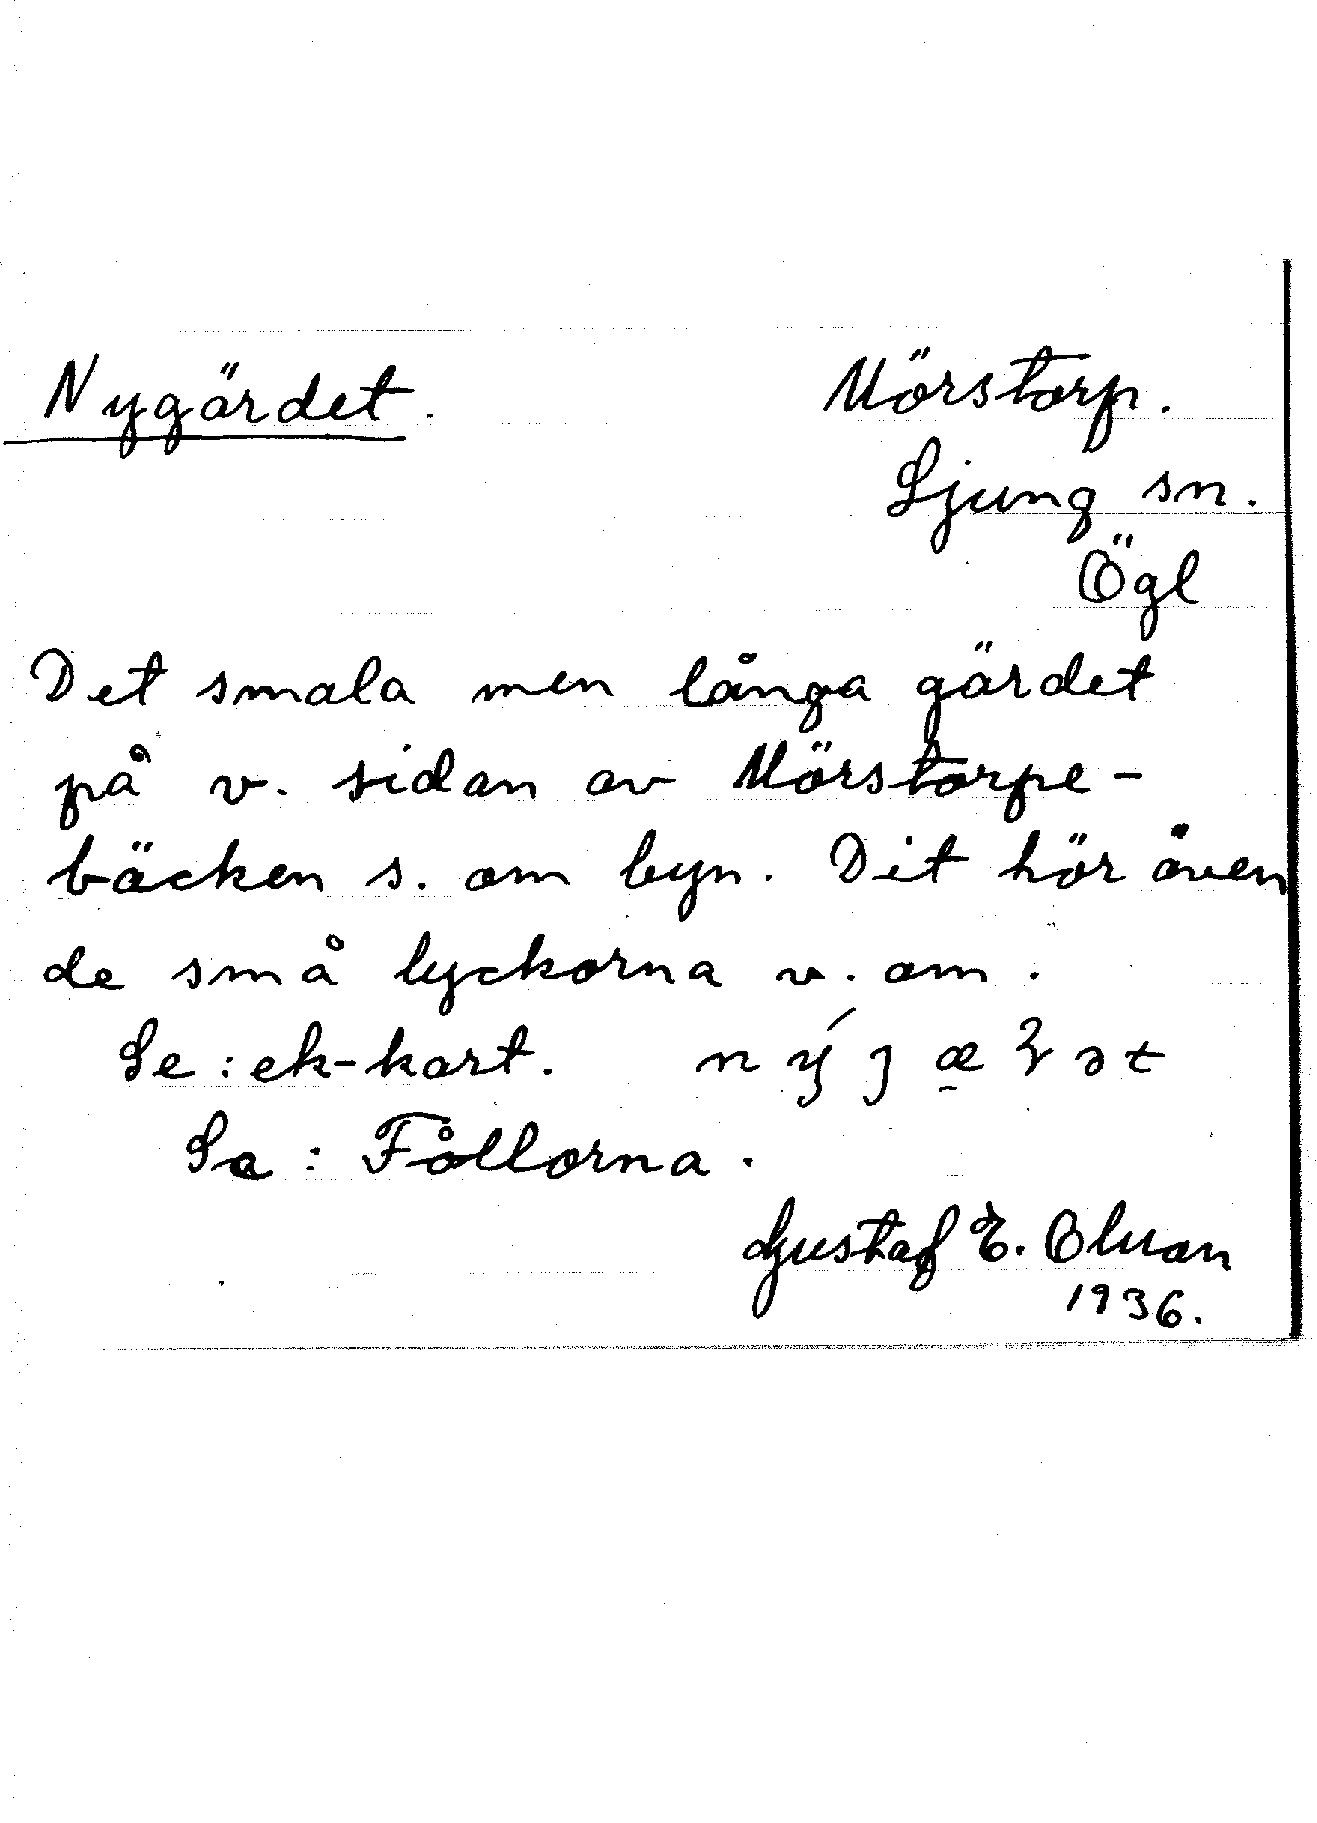 Nygärdet. Mörstorp.
Ljung sn.
Ögl
Det smala men långa gärdet
på v. sidan av Mörstorpe-
bäcken s. om byn. Dit hör även
de små lyckorna v. om.
Se: ek-kart.
Se: Fållorna.
Gustaf E. Olsson
1936.